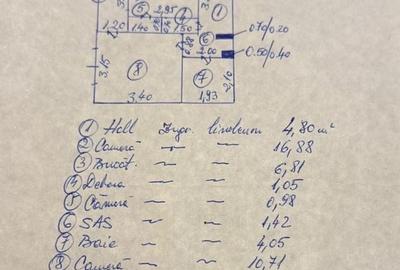 5 2,95 4 1
1.20 1.40 1.50 6 0.70/0.20
0.88 2.00 0.50/0.40
3.15 8 7 2,10
3.40 1,93
1 Hall Zugr. linoleum 4,80 m²
2 Cameră ~ ~ 16,88
3 Bucăt. ~ ~ 6,81
4 Debara ~ ~ 1,05
5 Cămară ~ ~ 0,98
6 SAS ~ ~ 1,42
7 Baie ~ ~ 4,05
8 Cameră ~ ~ 10,71